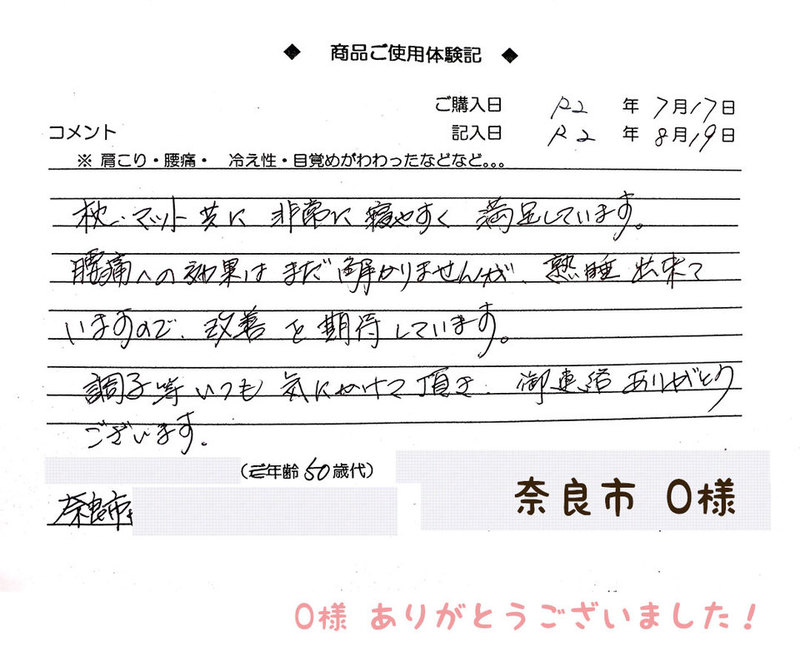 ◆ 商品ご使用体験記 ◆
ご購入日 R2 年 7月17日
コメント 記入日 R2 年 8月19日
※ 肩こり・腰痛・ 冷え性・目覚めがわわったなどなど。。。
枕、マット共に 非常に寝やすく 満足しています。
腰痛への効果はまだ解かりませんが、熟睡出来て
いますので、改善を期待しています。
調子等いつも気にかけて頂き、御連絡ありがとう
ございます。
年齢 50歳代)
奈良市
奈良市 O様
O様 ありがとうございました！